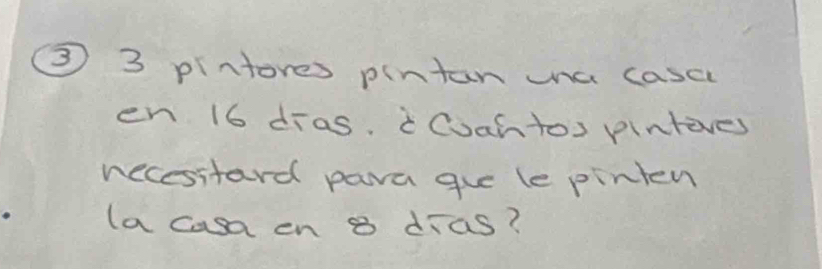 ③ 3 pintores pintan una casa
en 16 días. ¿Cuantos pintores
necesitard para que le pinten
la casa en 8 días?